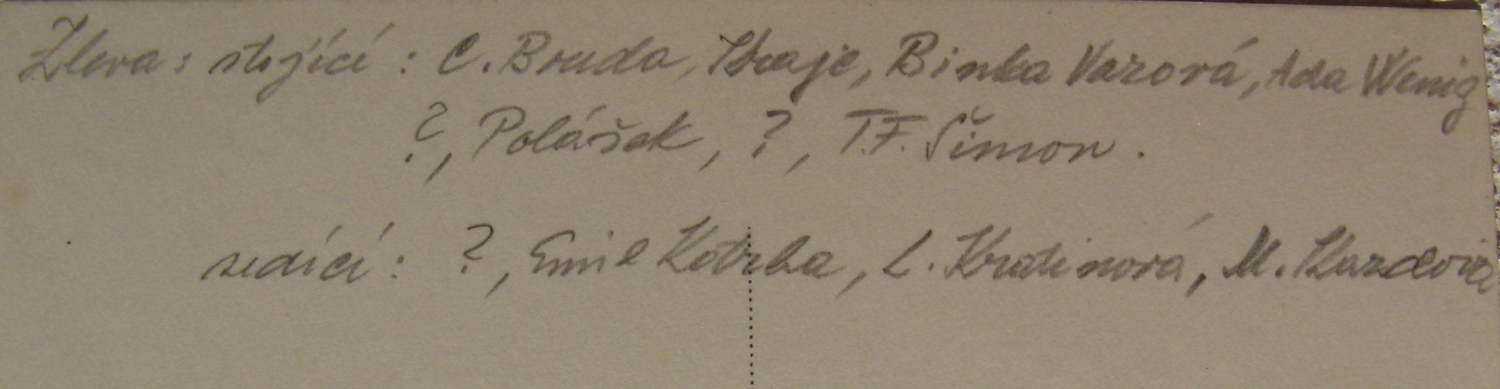 Zleva: stojící: C. Bouda, Straje, Binka Vazová, Ada Wenig
?, Polášek, ?, T.F. Šimon.
sedící: ?, Emil Kotrba, L. Kudinová, M.